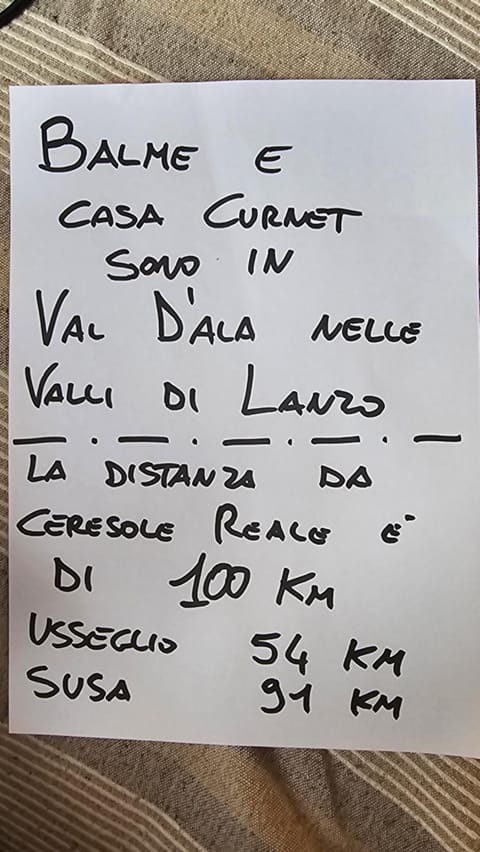 BALME E
CASA CURNET
SONO IN
VAL D'ALA NELLE
VALLI DI LANZO
— . — . — . — . —
LA DISTANZA DA
CERESOLE REALE E'
DI 100 KM
USSEGLIO 54 KM
SUSA 91 KM